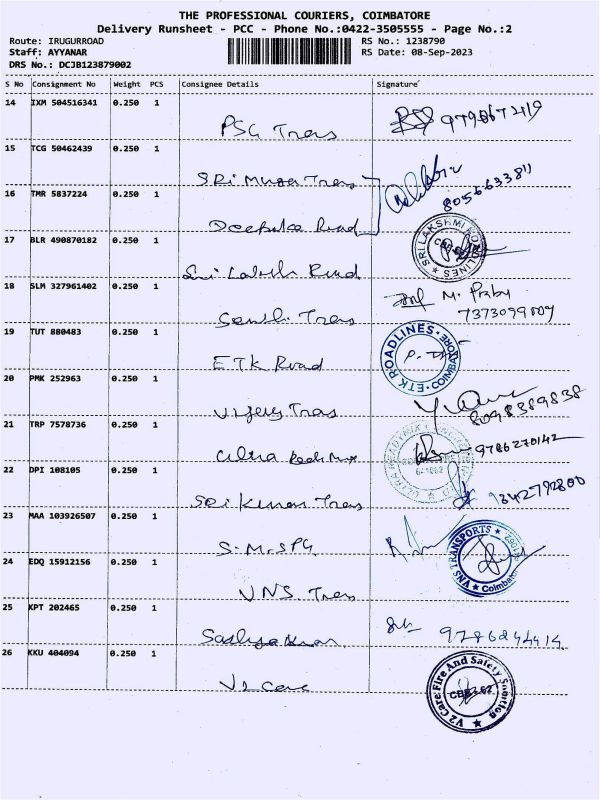 THE PROFESSIONAL COURIERS, COIMBATORE
Delivery Runsheet - PCC - Phone No.:0422-3505555 - Page No.:2
Route: IRUGURROAD RS No.: 1238790
Staff: AYYANAR RS Date: 08-Sep-2023
DRS No.: DCJB123879002
S No Consignment No Weight PCS Consignee Details Signature
14 IXM 504516341 0.250 1
PSG Trans
15 TCG 50462439 0.250 1
SRi Trans 8056633811
16 TMR 5837224 0.250 1
Road
17 BLR 490870182 0.250 1
SRI LAKSHMI ROADLINES
Sri Road
18 SLM 327961402 0.250 1
M. 
Trans
19 TUT 880483 0.250 1
ETK ROADLINES COIMBATORE
ETK Road
20 PMK 252963 0.250 1
Trans 8098389838
21 TRP 7578736 0.250 1
Ultra 9786270142
22 DPI 108105 0.250 1
Sri Trans
23 MAA 103926507 0.250 1
S.M.SPG
VNS TRANSPORTS
24 EDQ 15912156 0.250 1
Coimbatore
VNS Trans
25 KPT 202465 0.250 1
26 KKU 404094 0.250 1
V2 Care Fire And Safety Solution
V2 Care